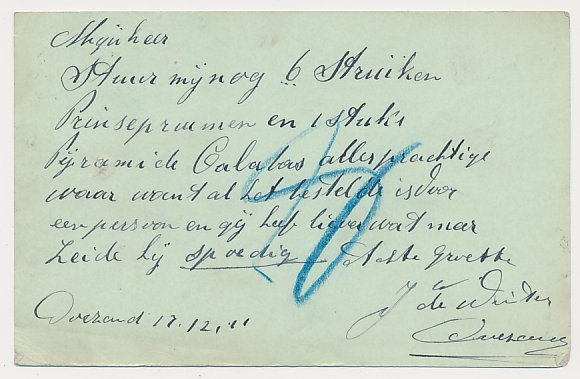 Mijnheer
Stuur mij nog 6 Struiken
Prinsepruimen en 1 stuks
Pijramide Calabas allerprachtige
waar want al het bestelde is voor
een persoon en gij heb liever wat mar
Zeide hij spoedig Groette
J de Winter
17.12.11